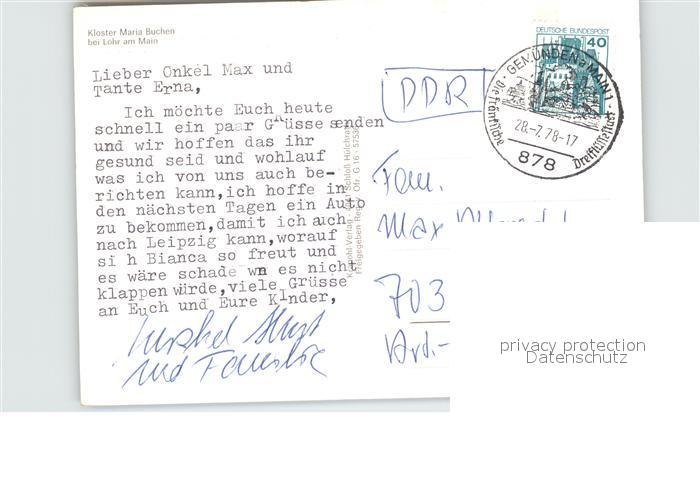 Kloster Maria Buchen
bei Lohr am Main
DEUTSCHE BUNDESPOST
40
GEMÜNDEN a MAIN 1
Die fränkische Dreiflüssestadt
28.-7.78-17
878
Lieber Onkel Max und
Tante Erna,
Ich möchte Euch heute
schnell ein paar Grüsse senden
und wir hoffen das ihr
gesund seid und wohlauf
was ich von uns auch be-
richten kann,ich hoffe in
den nächsten Tagen ein Auto
zu bekommen,damit ich auch
nach Leipzig kann,worauf
si h Bianca so freut und
es wäre schade wn es nicht
klappen würde,viele Grüsse
an Euch und Eure KInder,
und Familie
DDR
Fam.
Max
703
Schloß Hülchrath
Freigegeben Reg.
privacy protection
Datenschutz